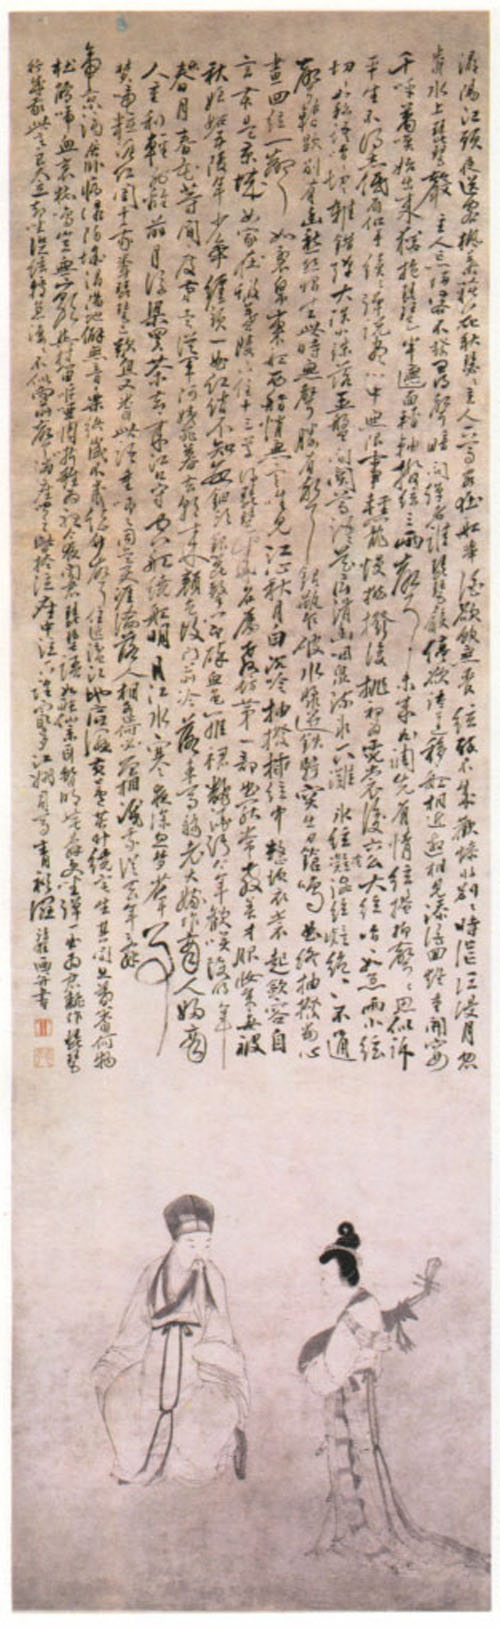 潯陽江頭夜送客楓葉荻花秋瑟瑟主人下馬客在船舉酒欲飲無管絃醉不成歡慘將別別時茫茫江浸月忽
聞水上琵琶聲主人忘歸客不發尋聲暗問彈者誰琵琶聲停欲語遲移船相近邀相見添酒回燈重開宴
千呼萬喚始出來猶抱琵琶半遮面轉軸撥絃三兩聲未成曲調先有情絃絃掩抑聲聲思似訴
平生不得志低眉信手續續彈說盡心中無限事輕攏慢撚撥復挑初為霓裳後六幺大絃嘈嘈如急雨小絃
切切如私語嘈嘈切切錯雜彈大珠小珠落玉盤間關鶯語花底滑幽咽泉流水下灘水絃凝絕絃凝絕不通
聲暫歇別有幽愁暗恨生此時無聲勝有聲銀瓶乍破水漿迸鐵騎突出刀鎗鳴曲終抽撥當心
畫四絃一聲如裂帛東船西舫悄無言唯見江心秋月白沉吟抽撥插絃中整頓衣裳起斂容自
言本是京城女家在蝦蟆陵下住十三學得琵琶成名屬教坊第一部曲罷常教善才服妝成每被
秋娘妬五陵年少爭纏頭一曲紅綃不知數鈿頭銀篦擊節碎血色羅裙翻酒汙今年歡笑復明年
秋月春風等閒度弟走從軍阿姨死暮去朝來顏色故門前冷落車馬稀老大嫁作商人婦商
人重利輕別離前月浮梁買茶去去來江口守空船繞船明月江水寒夜深忽夢少年事
夢啼粧淚紅闌干我聞琵琶已歎息又聞此語重唧唧同是天涯淪落人相逢何必曾相識我從去年辭
帝京謫居臥病潯陽城潯陽地僻無音樂終歲不聞絲竹聲住近湓江地低濕黃蘆苦竹繞宅生其間旦暮聞何物
杜鵑啼血哀猿鳴豈無山歌與村笛嘔啞嘲哳難為聽今夜聞君琵琶語如聽仙樂耳暫明莫辭更坐彈一曲為君翻作琵琶
行感我此言良久立却坐促絃絃轉急淒淒不似向前聲滿座聞之皆掩泣座中泣下誰最多江州司馬青衫濕